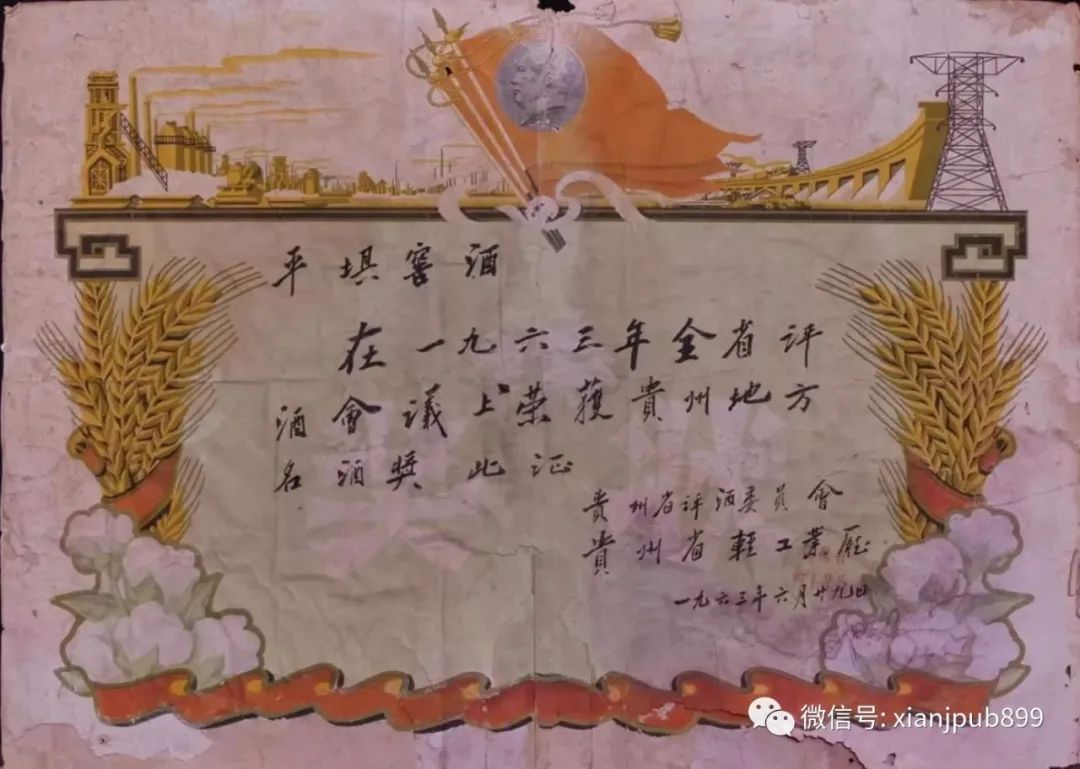 平埧窖酒
在一九六三年全省评
酒會議上荣獲貴州地方
名酒奬 此证
贵州省评酒委員會
貴州省輕工業廳
一九六三年六月廿九日
微信号: xianjpub899